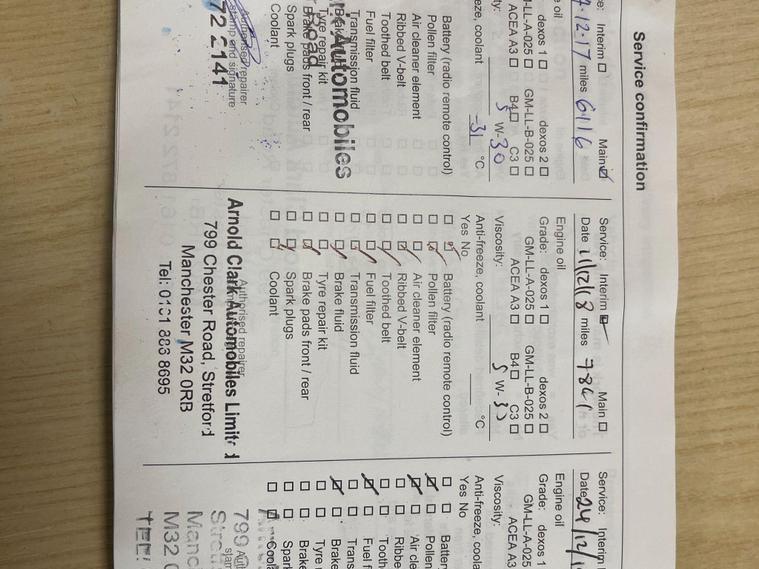 Service confirmation
Interim Main
12-17 miles 6116
e oil
dexos 1 dexos 2
GM-LL-A-025 GM-LL-B-025
ACEA A3 B4 C3
5 W-30
eze, coolant -31 °C
Battery (radio remote control)
Pollen filter
Air cleaner element
Ribbed V-belt
Toothed belt
Fuel filter
Transmission fluid
Automobiles
Tyre repair kit
Brake pads front / rear
Spark plugs
Coolant
stamp and signature
72 2141
Service: Interim Main
Date 11/12/18 miles
Engine oil
Grade: dexos 1 dexos 2
GM-LL-A-025 GM-LL-B-025
ACEA A3 B4 C3
Viscosity: 5 W-30
Anti-freeze, coolant °C
Yes No
Battery (radio remote control)
Pollen filter
Air cleaner element
Ribbed V-belt
Toothed belt
Fuel filter
Transmission fluid
Brake fluid
Tyre repair kit
Brake pads front / rear
Spark plugs
Coolant
Authorised repairer
Arnold Clark Automobiles Limit
799 Chester Road, Stretford
Manchester M32 0RB
Tel: 0131 883 8695
Service: Interim
Date 24/12/1
Engine oil
Grade: dexos 1
GM-LL-A-025
ACEA A3
Viscosity:
Anti-freeze, coola
Yes No
Batter
Pollen
Air cle
Ribbe
Tooth
Fuel f
Trans
Brake
Tyre r
Brake
Spark
Coola
799
Manc
M32